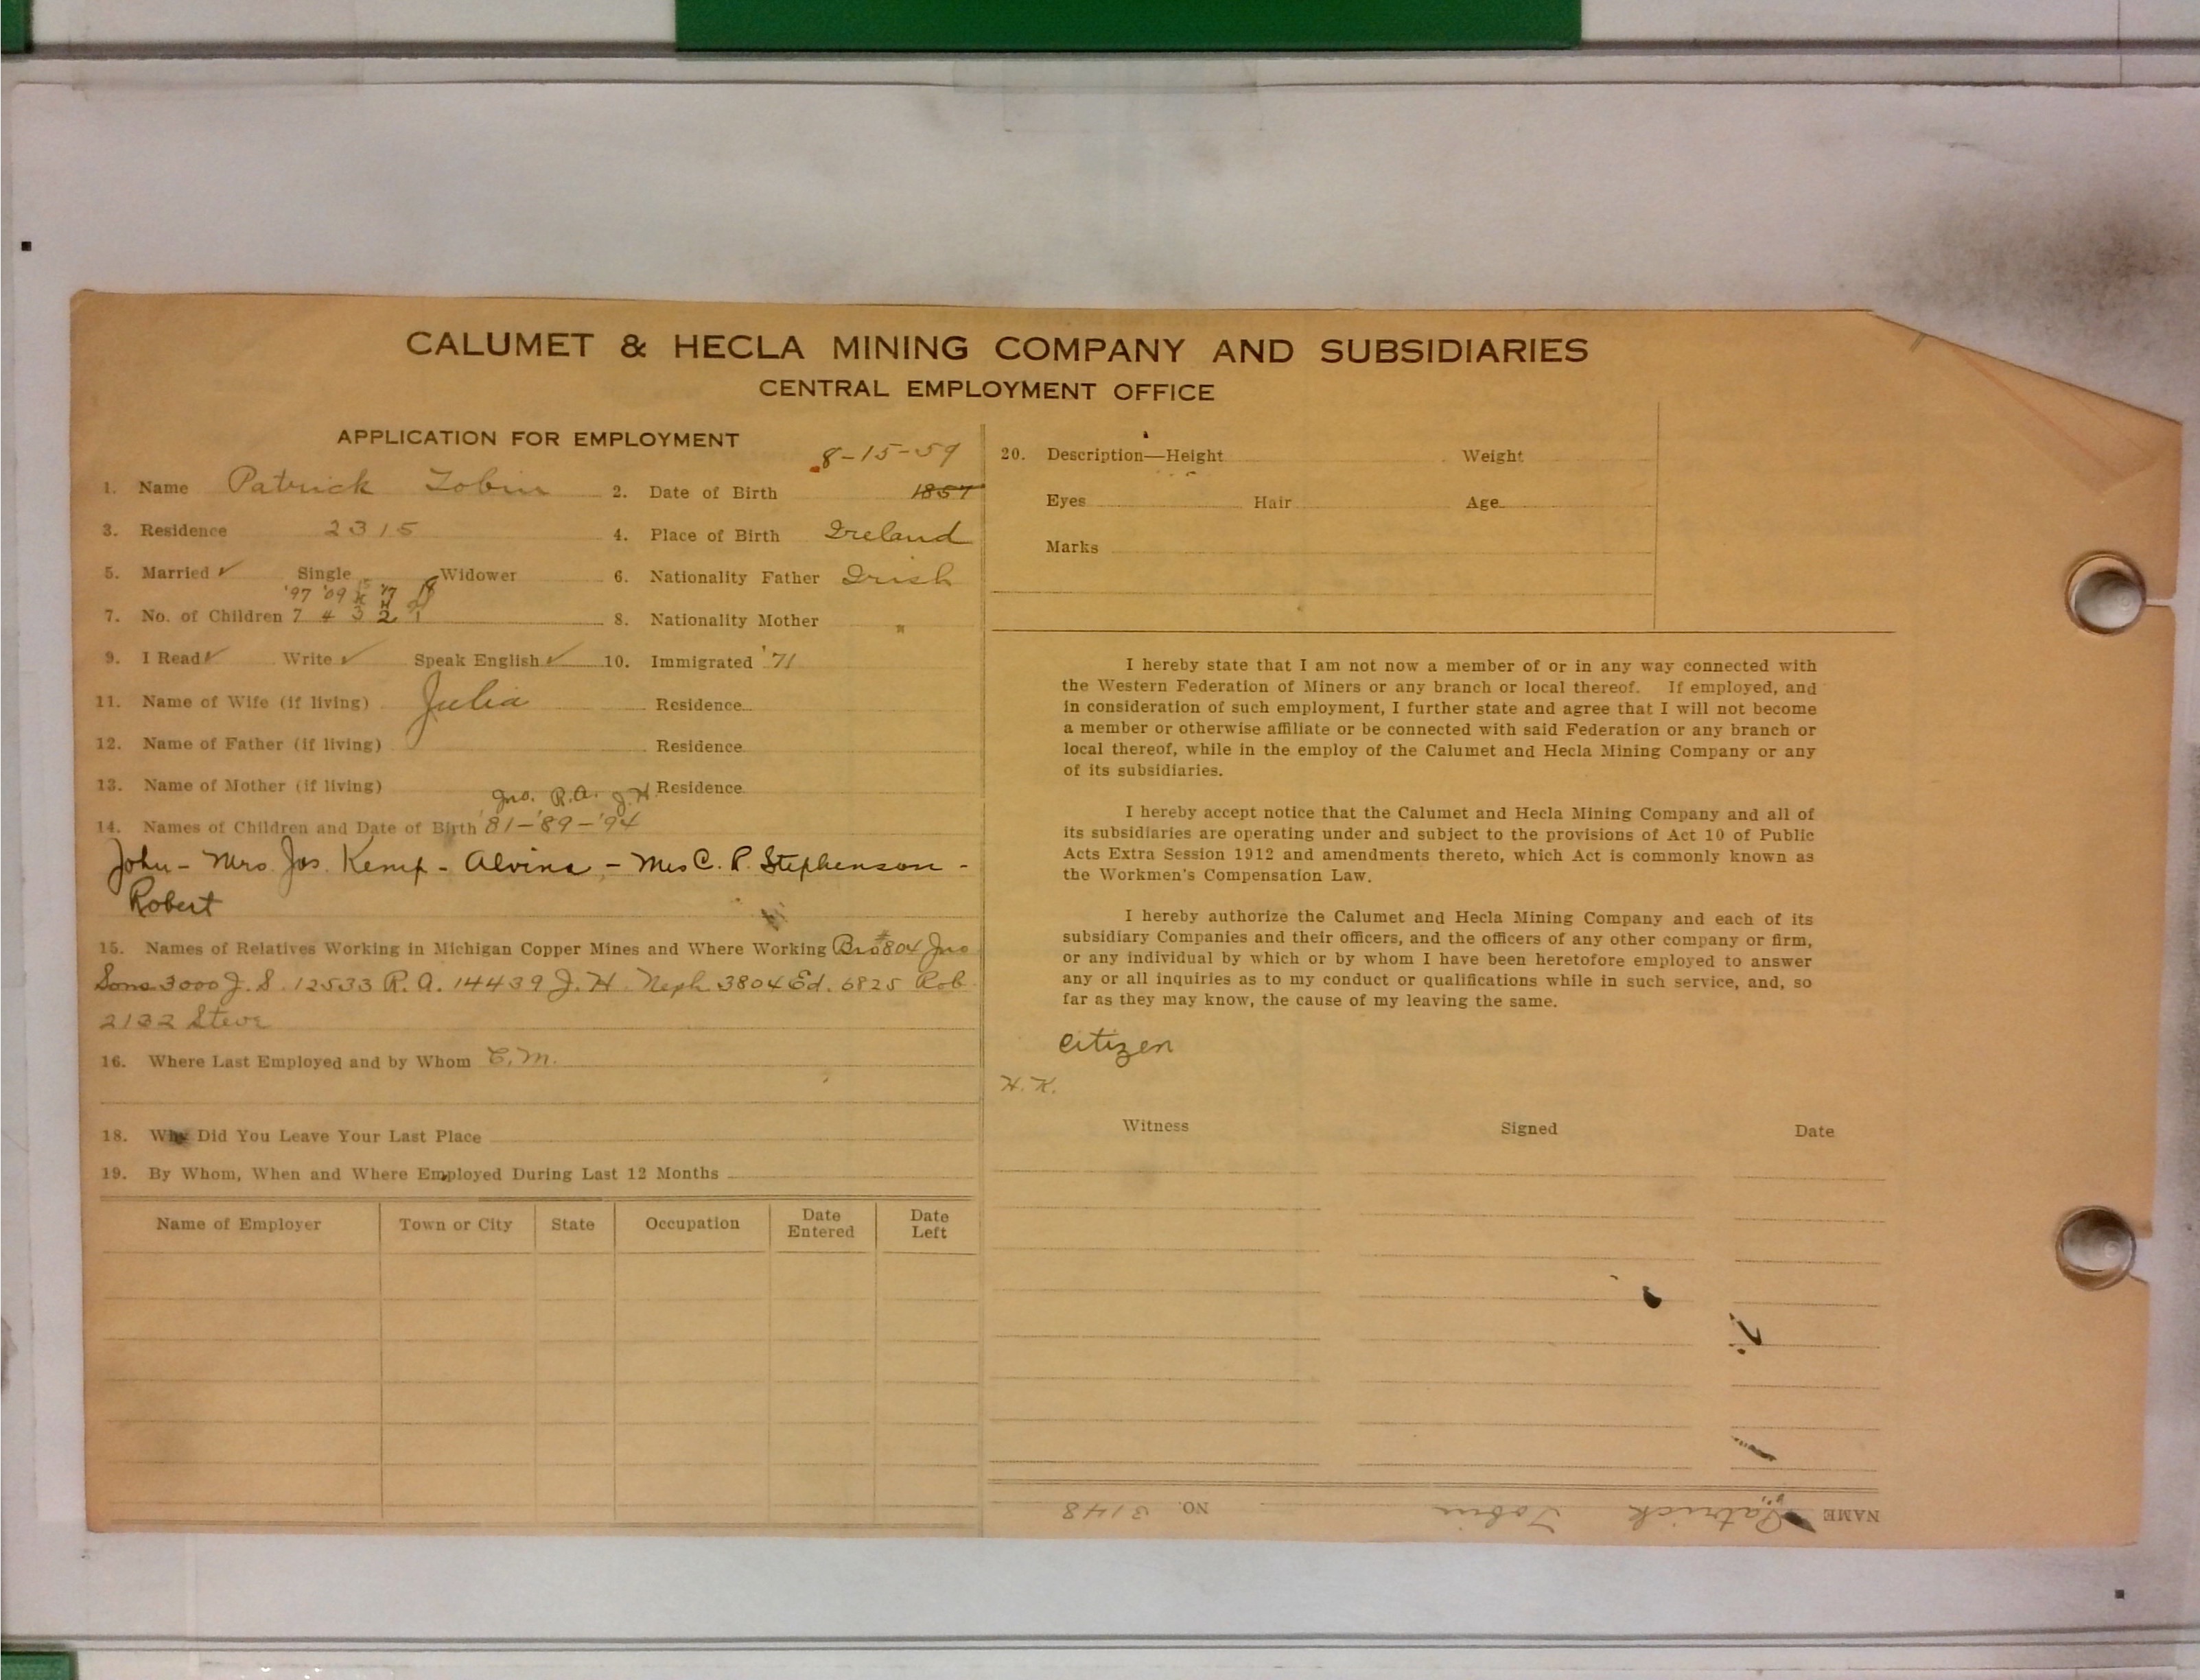 CALUMET & HECLA MINING COMPANY AND SUBSIDIARIES
CENTRAL EMPLOYMENT OFFICE
APPLICATION FOR EMPLOYMENT
8-15-59
1. Name Patrick Tobin 2. Date of Birth 1857
3. Residence 2315 4. Place of Birth Ireland
5. Married ✓ Single Widower 6. Nationality Father Irish
'97 '09 15 '17 18
7. No. of Children 7 4 3 2 1 8. Nationality Mother "
9. I Read ✓ Write ✓ Speak English ✓ 10. Immigrated '71
11. Name of Wife (if living) Julia Residence
12. Name of Father (if living) Residence
13. Name of Mother (if living) Residence
Jno. R.A. J.H.
14. Names of Children and Date of Birth '81-'89-'94
John - Mrs. Jos. Kemp - Alvina - Mrs C. P. Stephenson -
Robert
15. Names of Relatives Working in Michigan Copper Mines and Where Working Bro #804 Jno
Sons 3000 J. S. 12533 R. A. 14439 J. H. Neph 3804 Ed. 6825 Rob
2132 Steve
16. Where Last Employed and by Whom C. M.
18. Why Did You Leave Your Last Place
19. By Whom, When and Where Employed During Last 12 Months
Name of Employer Town or City State Occupation Date Entered Date Left
20. Description—Height Weight
Eyes Hair Age
Marks
I hereby state that I am not now a member of or in any way connected with
the Western Federation of Miners or any branch or local thereof. If employed, and
in consideration of such employment, I further state and agree that I will not become
a member or otherwise affiliate or be connected with said Federation or any branch or
local thereof, while in the employ of the Calumet and Hecla Mining Company or any
of its subsidiaries.
I hereby accept notice that the Calumet and Hecla Mining Company and all of
its subsidiaries are operating under and subject to the provisions of Act 10 of Public
Acts Extra Session 1912 and amendments thereto, which Act is commonly known as
the Workmen's Compensation Law.
I hereby authorize the Calumet and Hecla Mining Company and each of its
subsidiary Companies and their officers, and the officers of any other company or firm,
or any individual by which or by whom I have been heretofore employed to answer
any or all inquiries as to my conduct or qualifications while in such service, and, so
far as they may know, the cause of my leaving the same.
citizen
H. K.
Witness Signed Date
NAME Patrick Tobin NO. 3148